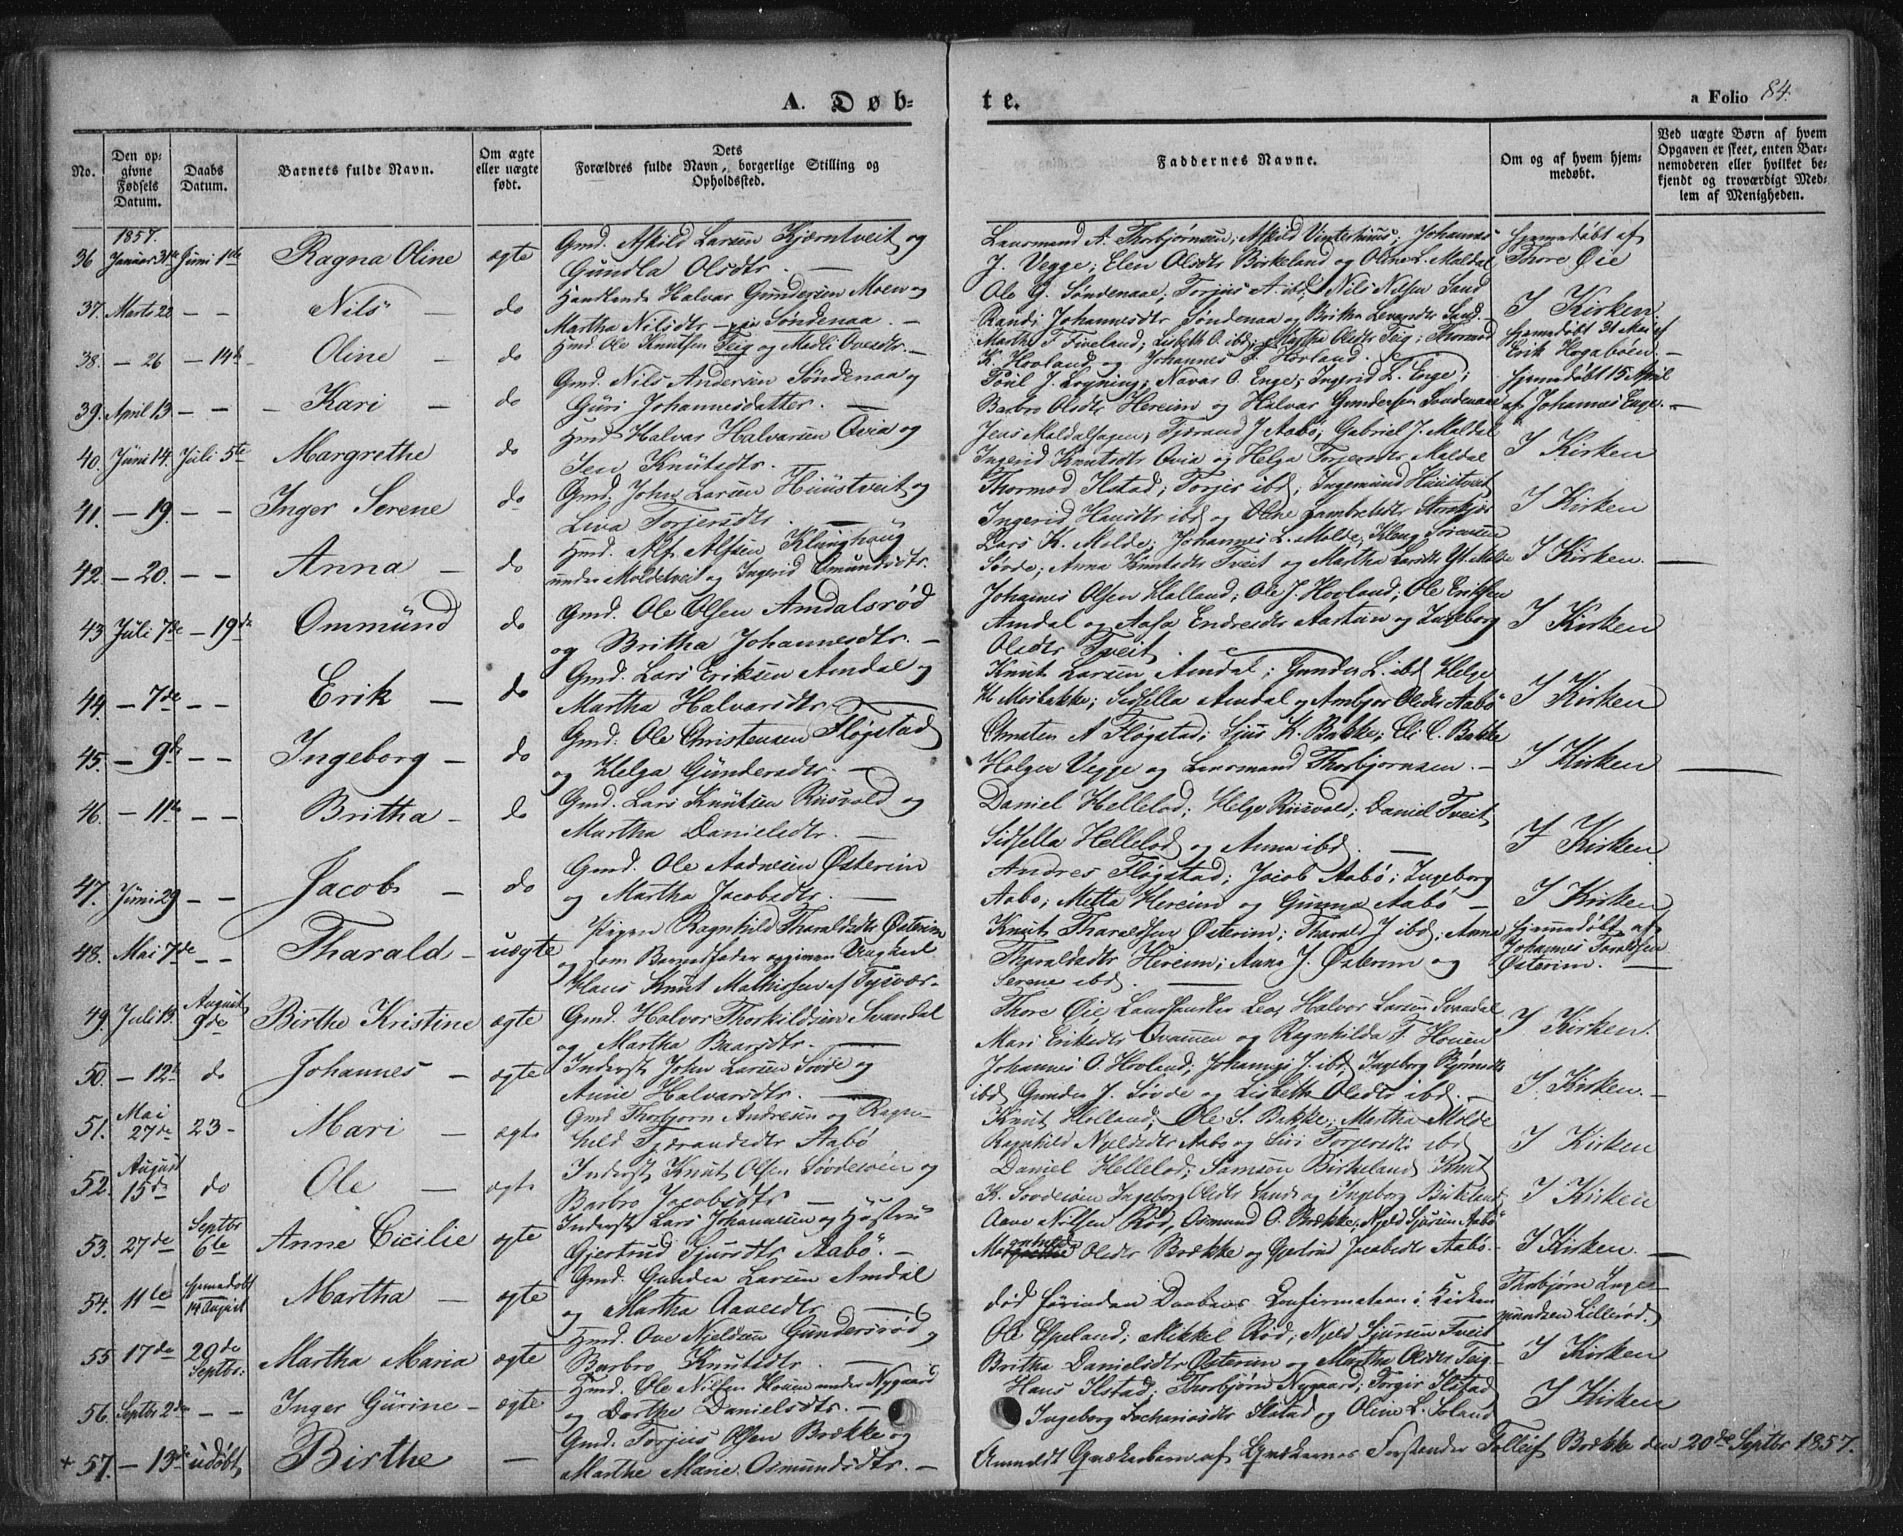 A. Døb-
te.
a Folio 84.
No.
Den op-
givne
Fødsels
Datum.
Daabs
Datum.
Barnets fulde Navn.
Om ægte
eller uægte
født.
Dets
Forældres fulde Navn, borgerlige Stilling og
Opholdssted.
Faddernes Navne.
Om og af hvem hjem-
medøbt.
Ved uægte Børn af hvem
Opgaven er skeet, enten Bar-
nemoderen eller hvilket be-
kjendt og troværdigt Med-
lem af Menigheden.
1857.
36 Januar 31te Juni 1ste Ragna Oline ægte Gmd. Askild Larsen Kjærntveit og
Gundla Olsdtr. —
Lensmand A. Thorbjørnsen; Askild Vinterhuus; Johannes
J. Vegge; Elen Olsdtr Birkeland og Oline L. Maldal
Hjemmedøbt af
Thore Øie
37. Marts 22 — — Nils — do Handlende Halvar Gundersen Moen og
Martha Nilsdtr — Søndenaa. —
Ole G. Søndenaae; Torjus A. ibd; Nils Nilsen Sand
Randi Johannesdtr Søndenaa og Britha Sand. —
I Kirken.
38. — 26 — 14de Oline — do Hmd Ole Knutsen Teig og Madli Ovesdtr. —
Martha T. Fiveland; Lisbeth O. ibd; Martha Olsdtr Teig; Thormod
K. Hovland og Johannes T. Hovland.
Hjemdøbt 31 Mai af
Erik Hogabøen. —
39. April 13. — — Kari — do Gmd. Nils Andersen Søndenaa og
Guri Johannesdatter. —
Navas O. Enge; Ingerid L. Enge;
Barbro Olsdtr Hereim og Halvar Gundersen Søndenaae
Hjemdøbt 15 April
af Johannes Enge. —
40. Juni 14. Juli 5te Margrethe do Hmd. Halvar Halvarsen Ovia og
Knutsdtr.
Jens Maldalshagen; Tjærand J. Aabø; Gabriel J. Maldal
Ingerid Knutsdtr Ovia og Helga Torjersdtr Maldal
I Kirken
41. — 19. — — Inger Serene do Gmd. John Larsen Huustveit og
Torjersdtr. —
Thormod Ilstad; Torjer ibd; Ingemund Huustveit
Ingerid Hansdtr ibd og Olene Lambrektsdtr
I Kirken
42. — 20. — — Anna — do Hmd. Alf Alfsen Klunghaug
under Moldetveit og Ingerid Omundsdtr.
Lars K. Molde; Johannes L. Molde;
Søvde; Anna Knutsdtr Tveit og Martha Larsdtr Yt. Molde
I Kirken. —
43. Juli 7de — 19de Ommund do Gmd. Ole Olsen Amdalsrød
og Britha Johannesdtr. —
Johannes Olsen Halland; Ole J. Hovland; Ole Eriksen
Amdal og Aasa Endresdtr Aartun og Ingeborg
Olsdtr Tveit.
I Kirken
44. — 7de — — Erik — do Gmd. Lars Eriksen Amdal og
Martha Halvarsdtr. —
Knut Larsen Amdal; Gunder L. ibd Helge
H. Mosbakke; Sidsella Amdal og Olsdtr Aabø
I Kirken
45. — 9de — — Ingeborg — do Gmd. Ole Christensen Fløgstad
og Helga Gundersdtr. —
Christen A Fløgstad; Sjur K. Bakke; Eli O. Bakke
Holger Vegge og Lensmand Thorbjørnsen. —
I Kirken —
46. — 11te — — Britha — do Gmd. Lars Knutsen Riisvold og
Martha Danielsdtr. —
Daniel Helleloe; Helge Riisvold; Daniel Tveit
Sidsella Helleloe og Anna ibd. —
I Kirken
47. Juni 29 — — Jacob — do Gmd. Ole Aadnesen Østerim
og Martha Jacobsdtr. —
Andres Fløgstad; Jacob Aabø; Ingeborg
Aabø; Metta Hereim og Gunna Aabø —
I Kirken
48. Mai 7de — — Tharald — uægte Pigen Ragnhild Tharaldsdtr Østerim
og som Barnefader opgiven Ungkarl
Hans Knut Mathissen af Tysvær. —
Knut Tharaldsen Østerim; Tharald J ibd; Anna
Tharaldsdtr Hereim; Anna J. Østerim og
Serene ibd. —
Hjemmedøbt af
Johannes Taraldsen
Østerim. —
49. Juli 13. August 9de Birthe Kristine ægte Gmd. Halvor Thorkildsen Svandal
og Martha Baarsdtr. —
Thore Øie Landhandler Halvor Larsen Svandal
Mari Eriksdtr og Ragnhilda T. Houen
I Kirken.
50. — 12te do Johannes — ægte Inderst John Larsen Søvde og
Anne Halvarsdtr. —
Johannes O. Hovland; Johannes J. ibd, Ingeborg Bjørnsdtr
ibd Gunder J. Søvde og Lisbeth Olsdtr ibd. —
I Kirken. —
51. Mai 27de 23 — Mari — ægte Gmd Thorbjørn Andresen og Ragn-
hild Tjerandsdtr Aabø
Knut Holland; Ole S. Bakke; Martha Molde
Ragnhild Njelsdtr Aabø og Siri Torjersdtr ibd
I Kirken
52. August 15de do Ole — ægte Inderst Knut Olsen Søvdesøen og
Barbro Jacobsdtr —
Daniel Helleloe; Samson Birkeland, Knut
K. Søvdesøen Ingeborg Olsdtr Sand og Ingeborg Birkeland
I Kirken
53. 27de Septbr 6te Anne Cicilie ægte Inderst Lars Johannesen og Hustru
Gjertrud Sjursdtr Aabø. —
Aave Nilsen Rød, Osmund O. Brække, Njeld Sjursen Aabø
Magnhild Olsdtr Brække og Gjertrud Jacobsdtr Aabø. —
I Kirken. —
54. 11te Hjemmedøbt 14 August Martha — ægte Gmd. Gunder Larsen Amdal
og Martha Aavesdtr —
død førinden Daabens Confirmation i Kirken
Thorbjørn Inge-
mundsen Lillerød.
55 17de 20de Septbr: Martha Maria ægte Hmd. Ove Njeldsen Gundersrød og
Barbro Knutsdtr. —
Ole Espeland; Mikkel Rød; Njeld Sjursen Tveit
Britha Danielsdtr Østerim og Martha Olsdtr Teig —
I Kirken
56. Septbr 2de — — Inger Gurine — ægte Hmd. Ole Nilsen Houen under Nygaard
og Dorthe Danielsdtr. —
Hans Ilstad; Thorbjørn Nygaard; Torgir Ilstad
Ingeborg Zachariasdtr Ilstad og Oline L. Soland
I Kirken
+ 57. — 13de udøbt Birthe — Gmd. Torjus Olsen Brække og
Marthe Marie Osmundsdtr. —
Anmeldt Qvækerbarn af Qvækernes Forstander Tolleif Brække den 20de Septbr 1857.